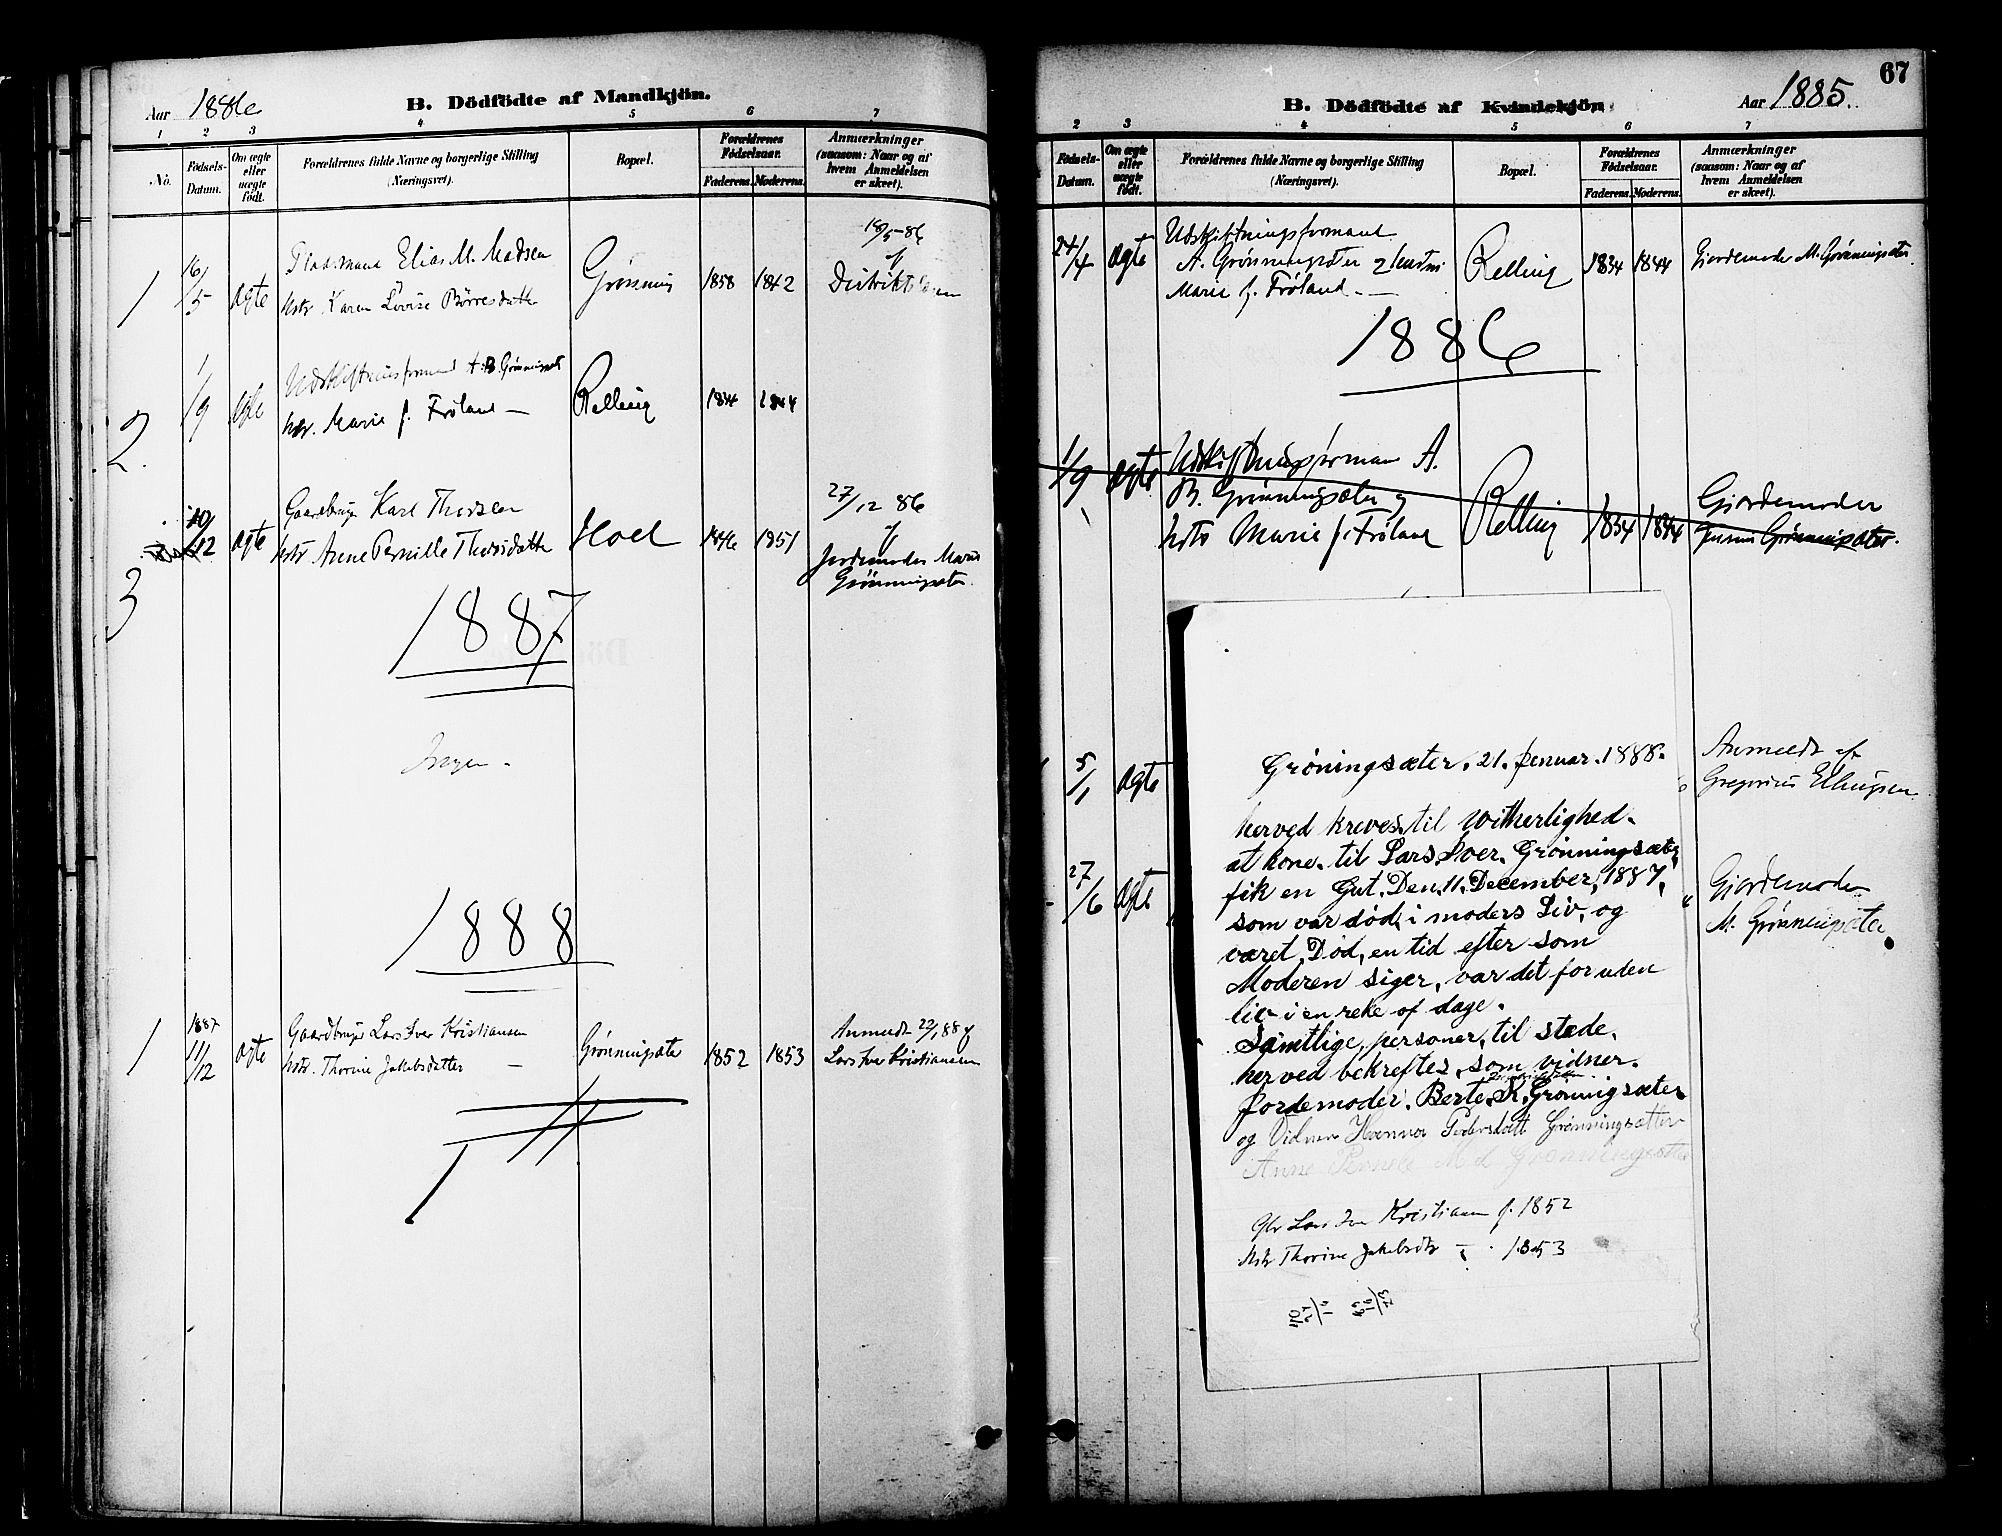 Aar 1886
B. Dödfödte af Mandkjön.
1 2 3 4 5 6 7
No.
Födsels-
Datum.
Om ægte
eller
uægte
födt.
Forældrenes fulde Navne og borgerlige Stilling
(Næringsvei).
Bopæl.
Forældrenes
Födselsaar.
Faderens. Moderens.
Anmærkninger
(saasom: Naar og af
hvem Anmeldelsen
er skeet).
1 16/5 ægte
Pladsmand Elias M. Madsen
hstr Karen Lovise Børresdatter
Grønning 1858 1842
18/5-86
2 1/9 ægte
Udskiftningsformand A. B. Grønningsæter
hstr. Marie f. Frøland —
Relling 1834 1844
3 10/12 ægte
Gaardbruger Karl Thorsen
hstr Anne Pernille Thorsdatter
Hoel 1846 1851
27/12 86
Jordemoder Maren
Grønningsæter
1887
Ingen.
1888
1 1887 11/12 ægte
Gaardbruger Lars Iver Kristiansen
hstr. Thorine Jakobsdatter —
Grønningsæter 1852 1853
Anmeldt 22/1 88 af
Lars Iver Kristiansen
67
B. Dödfödte af Kvindekjön
Aar 1885.
2 3 4 5 6 7
Födsels-
Datum.
Om ægte
eller
uægte
födt.
Forældrenes fulde Navne og borgerlige Stilling
(Næringsvei).
Bopæl.
Forældrenes
Födselsaar.
Faderens. Moderens.
Anmærkninger
(saasom: Naar og af
hvem Anmeldelsen
er skeet).
24/4 ægte
Udskiftningsformand
A. Grønningsæter
Marie f. Frøland —
Relling 1834 1844
Gjordemoder M. Grønningsæter
1886
1/9 ægte
Udskiftningsformand A.
B. Grønningsæter og
hstr Marie f. Frøland
Relling 1834 1844
Gjordemoder
Grønningsæter.
5/1 ægte
Anmeldt af
Gregorius Ellingsen
27/6 ægte
Gjordemoder
M. Grønningsæter
Grøningsæter. 21. Januar. 1888.
herved kreves til Witherlighed.
at kone. til Lars Iver. Grønningsæter
fik en Gut. Den. 11. December, 1887,
som var død, i moders Liv, og
været, Død, en tid efter som
Moderen siger, var det foruden
liv i en reke of dage.
Samtlige, personer, til stede.
herved bekreftes, som vidner.
Jordemoder. Berte. K. Grøningsæter
og Vidner Hanna Pedersdatt Grønningsætter
Anne Pernele M d Grønningsæter
Gbr Lars Iver Kristiansen f. 1852
Hstr Thorine Jakobsdtr — . 1853